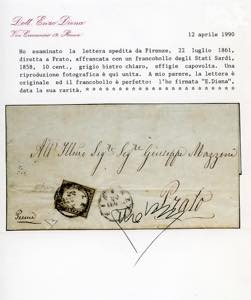 Dott. Enzo Diena
12 aprile 1990
Ho esaminato la lettera spedita da Firenze, 22 luglio 1861,
diretta a Prato, affrancata con un francobollo degli Stati Sardi,
1858, 10 cent., grigio bistro chiaro, effigie capovolta. Una
riproduzione fotografica è qui unita. A mio parere, la lettera è
originale ed il francobollo è perfetto: l'ho firmata "E.Diena",
data la sua rarità.
All' Illmo Sigre Sigre Giuseppe Mazzoni
Prato